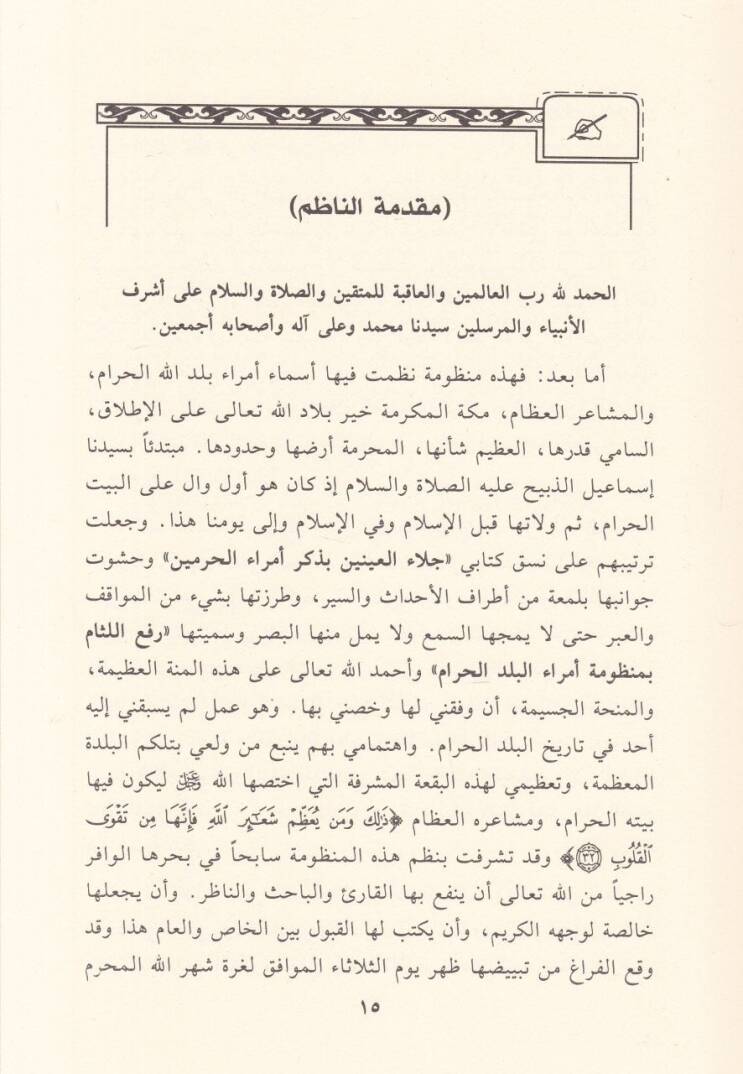 (مقدمة الناظم)
الحمد لله رب العالمين والعاقبة للمتقين والصلاة والسلام على أشرف
الأنبياء والمرسلين سيدنا محمد وعلى آله وأصحابه أجمعين.
أما بعد: فهذه منظومة نظمت فيها أسماء أمراء بلد الله الحرام،
والمشاعر العظام، مكة المكرمة خير بلاد الله تعالى على الإطلاق،
السامي قدرها، العظيم شأنها، المحرمة أرضها وحدودها. مبتدئاً بسيدنا
إسماعيل الذبيح عليه الصلاة والسلام إذ كان هو أول وال على البيت
الحرام، ثم ولاتها قبل الإسلام وفي الإسلام وإلى يومنا هذا. وجعلت
ترتيبهم على نسق كتابي «جلاء العينين بذكر أمراء الحرمين» وحشوت
جوانبها بلمعة من أطراف الأحداث والسير، وطرزتها بشيء من المواقف
والعبر حتى لا يمجها السمع ولا يمل منها البصر وسميتها «رفع اللثام
بمنظومة أمراء البلد الحرام» وأحمد الله تعالى على هذه المنة العظيمة،
والمنحة الجسيمة، أن وفقني لها وخصني بها. وهو عمل لم يسبقني إليه
أحد في تاريخ البلد الحرام. واهتمامي بهم ينبع من ولعي بتلكم البلدة
المعظمة، وتعظيمي لهذه البقعة المشرفة التي اختصها الله ﷿ ليكون فيها
بيته الحرام، ومشاعره العظام ﴿ذَٰلِكَ وَمَن يُعَظِّمْ شَعَٰٓئِرَ ٱللَّهِ فَإِنَّهَا مِن تَقْوَى
ٱلْقُلُوبِ ٣٢﴾ وقد تشرفت بنظم هذه المنظومة سابحاً في بحرها الوافر
راجياً من الله تعالى أن ينفع بها القارئ والباحث والناظر. وأن يجعلها
خالصة لوجهه الكريم، وأن يكتب لها القبول بين الخاص والعام هذا وقد
وقع الفراغ من تبييضها ظهر يوم الثلاثاء الموافق لغرة شهر الله المحرم
١٥